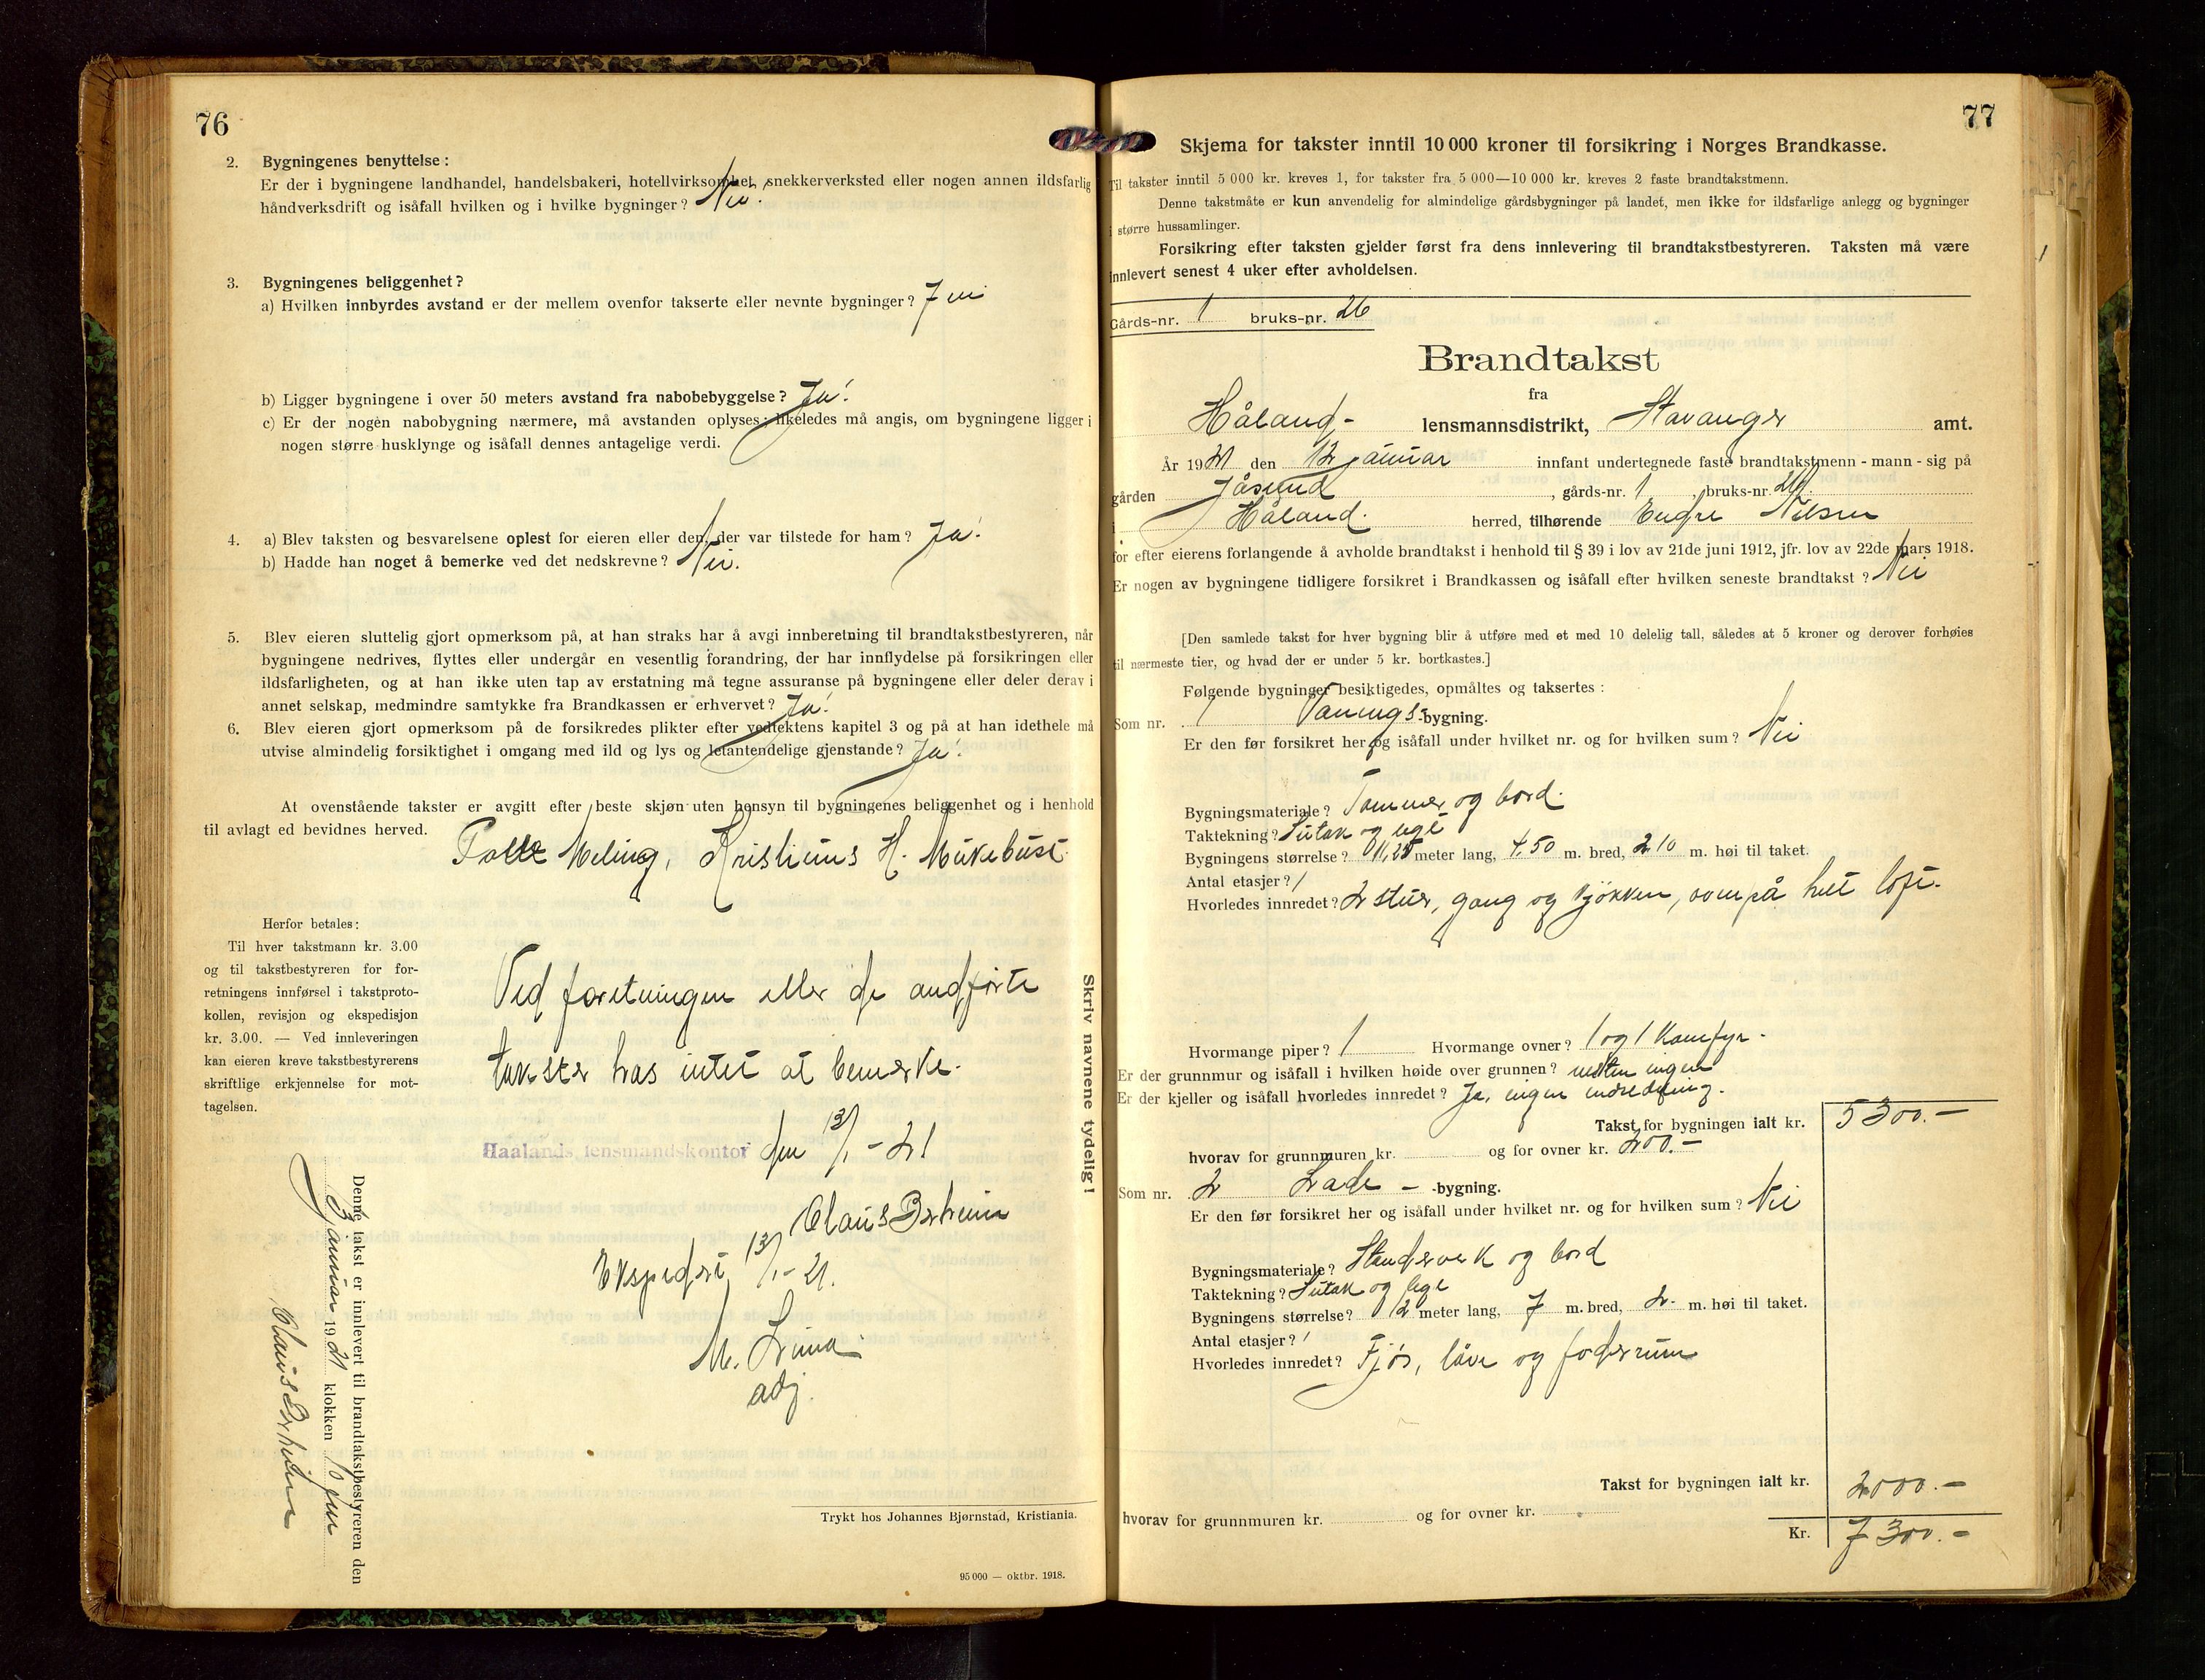 76
2. Bygningenes benyttelse:
Er der i bygningene landhandel, handelsbakeri, hotellvirksomhet, snekkerverksted eller nogen annen ildsfarlig
håndverksdrift og isåfall hvilken og i hvilke bygninger? Nei.
3. Bygningenes beliggenhet?
a) Hvilken innbyrdes avstand er der mellem ovenfor takserte eller nevnte bygninger? 7 m
b) Ligger bygningene i over 50 meters avstand fra nabobebyggelse? Ja!
c) Er der nogen nabobygning nærmere, må avstanden oplyses; likeledes må angis, om bygningene ligger i
nogen større husklynge og isåfall dennes antagelige verdi.
4. a) Blev taksten og besvarelsene oplest for eieren eller den, der var tilstede for ham? Ja!
b) Hadde han noget å bemerke ved det nedskrevne? Nei.
5. Blev eieren sluttelig gjort opmerksom på, at han straks har å avgi innberetning til brandtakstbestyreren, når
bygningene nedrives, flyttes eller undergår en vesentlig forandring, der har innflydelse på forsikringen eller
ildsfarligheten, og at han ikke uten tap av erstatning må tegne assuranse på bygningene eller deler derav i
annet selskap, medmindre samtykke fra Brandkassen er erhvervet? Ja!
6. Blev eieren gjort opmerksom på de forsikredes plikter efter vedtektens kapitel 3 og på at han idethele må
utvise almindelig forsiktighet i omgang med ild og lys og letantendelige gjenstande? Ja!
At ovenstående takster er avgitt efter beste skjøn uten hensyn til bygningenes beliggenhet og i henhold
til avlagt ed bevidnes herved.
Meling, Kristians H.
Herfor betales:
Til hver takstmann kr. 3.00
og til takstbestyreren for for-
retningens innførsel i takstproto-
kollen, revisjon og ekspedisjon
kr. 3.00. — Ved innleveringen
kan eieren kreve takstbestyrerens
skriftlige erkjennelse for mot-
tagelsen.
Ved forretningen eller de andførte
takster has intet at bemerke.
Haalands lensmandskontor den 13/1 - 21
Claus Berheim
Ekspedert 13/1 - 21.
M. Lund
adj.
Denne takst er innlevert til brandtakstbestyreren den
13 januar 1921 klokken 10 fm
Claus Berheim
Skriv navnene tydelig!
Trykt hos Johannes Bjørnstad, Kristiania.
95 000 — oktbr. 1918.
77
Skjema for takster inntil 10 000 kroner til forsikring i Norges Brandkasse.
Til takster inntil 5 000 kr. kreves 1, for takster fra 5 000—10 000 kr. kreves 2 faste brandtakstmenn.
Denne takstmåte er kun anvendelig for almindelige gårdsbygninger på landet, men ikke for ildsfarlige anlegg og bygninger
i større hussamlinger.
Forsikring efter taksten gjelder først fra dens innlevering til brandtakstbestyreren. Taksten må være
innlevert senest 4 uker efter avholdelsen.
Gårds-nr. 1 bruks-nr. 26
Brandtakst
fra
Håland- lensmannsdistrikt, Stavanger amt.
År 1921 den 12 januar innfant undertegnede faste brandtakstmenn - mann - sig på
gården Jåsund, gårds-nr. 1, bruks-nr. 26
i Håland. herred, tilhørende Endre Nilsen
for efter eierens forlangende å avholde brandtakst i henhold til § 39 i lov av 21de juni 1912, jfr. lov av 22de mars 1918.
Er nogen av bygningene tidligere forsikret i Brandkassen og isåfall efter hvilken seneste brandtakst? Nei
[Den samlede takst for hver bygning blir å utføre med et med 10 delelig tall, således at 5 kroner og derover forhøies
til nærmeste tier, og hvad der er under 5 kr. bortkastes.]
Følgende bygninger besiktigedes, opmåltes og taksertes:
Som nr. 1 Vånings-bygning.
Er den før forsikret her og isåfall under hvilket nr. og for hvilken sum? Nei
Bygningsmateriale? Tømmer og bord.
Taktekning? Sutak og tegl
Bygningens størrelse? 11,25 meter lang, 4.50 m. bred, 2 10 m. høi til taket.
Antal etasjer? 1
Hvorledes innredet? 2 stuer, gang og kjøkken, rom på hele loft.
Hvormange piper? 1 Hvormange ovner? 1 og 1 Komfyr.
Er der grunnmur og isåfall i hvilken høide over grunnen? nesten ingen
Er der kjeller og isåfall hvorledes innredet? Ja, ingen indredning.
Takst for bygningen ialt kr. 5300.-
hvorav for grunnmuren kr. og for ovner kr. 200.-
Som nr. 2 Lade - -bygning.
Er den før forsikret her og isåfall under hvilket nr. og for hvilken sum? Nei
Bygningsmateriale? Standerverk og bord
Taktekning? Sutak og tegl
Bygningens størrelse? 12 meter lang, 7 m. bred, 2. m. høi til taket.
Antal etasjer? 1
Hvorledes innredet? Fjøs, låve og foderrum
Takst for bygningen ialt kr. 2000.-
hvorav for grunnmuren kr. og for ovner kr.
Kr. 7300.-